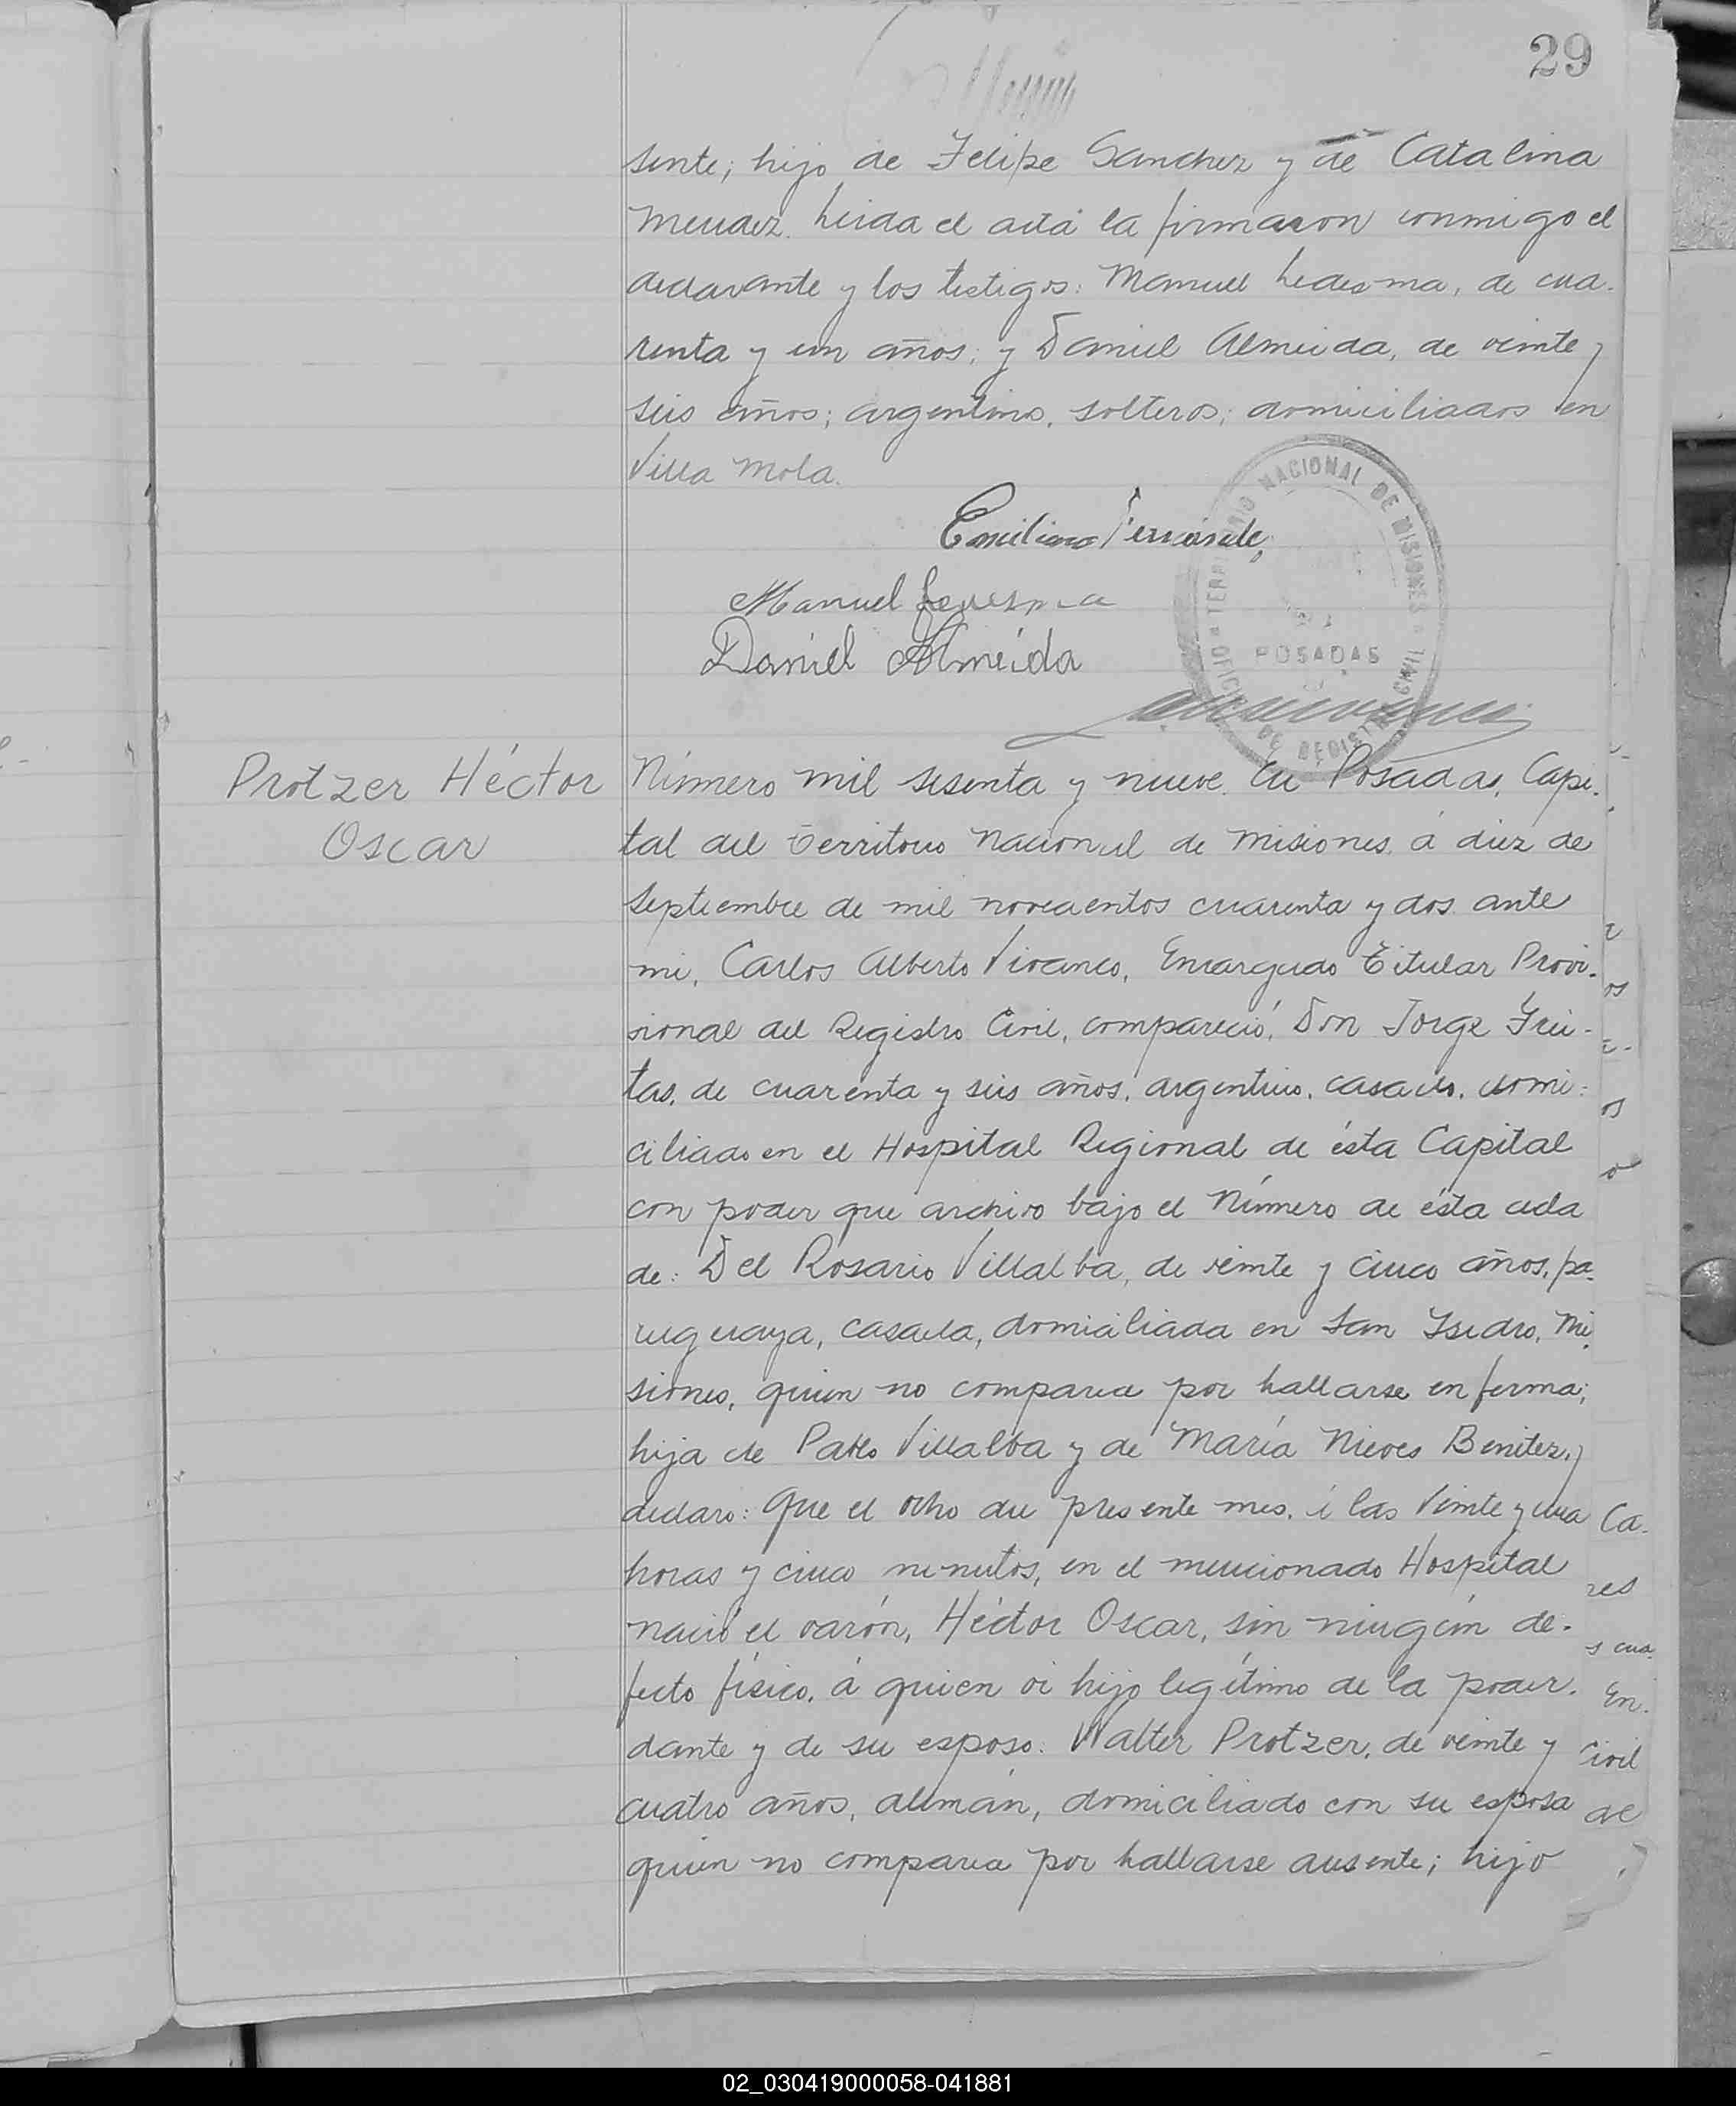 29
sente; hijo de Felipe Sanchez y de Catalina
Mendez. Leida el acta la firmaron conmigo el
declarante y los testigos: Manuel Ledesma, de cua-
renta y un años; y Daniel Almeida, de veinte y
seis años; argentinos, solteros; domiciliados en
Villa Mola.
Emiliano Fernández
Manuel Ledesma
Daniel Almeida
OFICINA DE REGISTRO CIVIL TERRITORIO NACIONAL DE MISIONES
POSADAS
Protzer Héctor
Oscar
Número mil sesenta y nueve. En Posadas, Capi-
tal del Territorio Nacional de Misiones, á diez de
Septiembre de mil novecientos cuarenta y dos ante
mi, Carlos Alberto Vivanco, Encargado Titular Provi-
sional del Registro Civil, compareció, Don Jorge Frei-
tas, de cuarenta y seis años, argentino, casado, domi-
ciliado en el Hospital Regional de ésta Capital
con poder que archivo bajo el Número de ésta acta
de: Del Rosario Villalba, de veinte y cinco años, pa-
raguaya, casada, domiciliada en San Isidro, Mi-
siones, quien no comparece por hallarse enferma;
hija de Pablo Villalba y de María Nieves Benitez, y
declaro: Que el ocho del presente mes, á las veinte y una
horas y cinco minutos, en el mencionado Hospital
nació el varón, Héctor Oscar, sin ningún de-
fecto físico, á quien vi hijo legítimo de la poder-
dante y de su esposo: Walter Protzer, de veinte y
cuatro años, alemán, domiciliado con su esposa
quien no comparece por hallarse ausente; hijo
Ca-
res
s cua-
En-
Civil
de
02_030419000058-041881